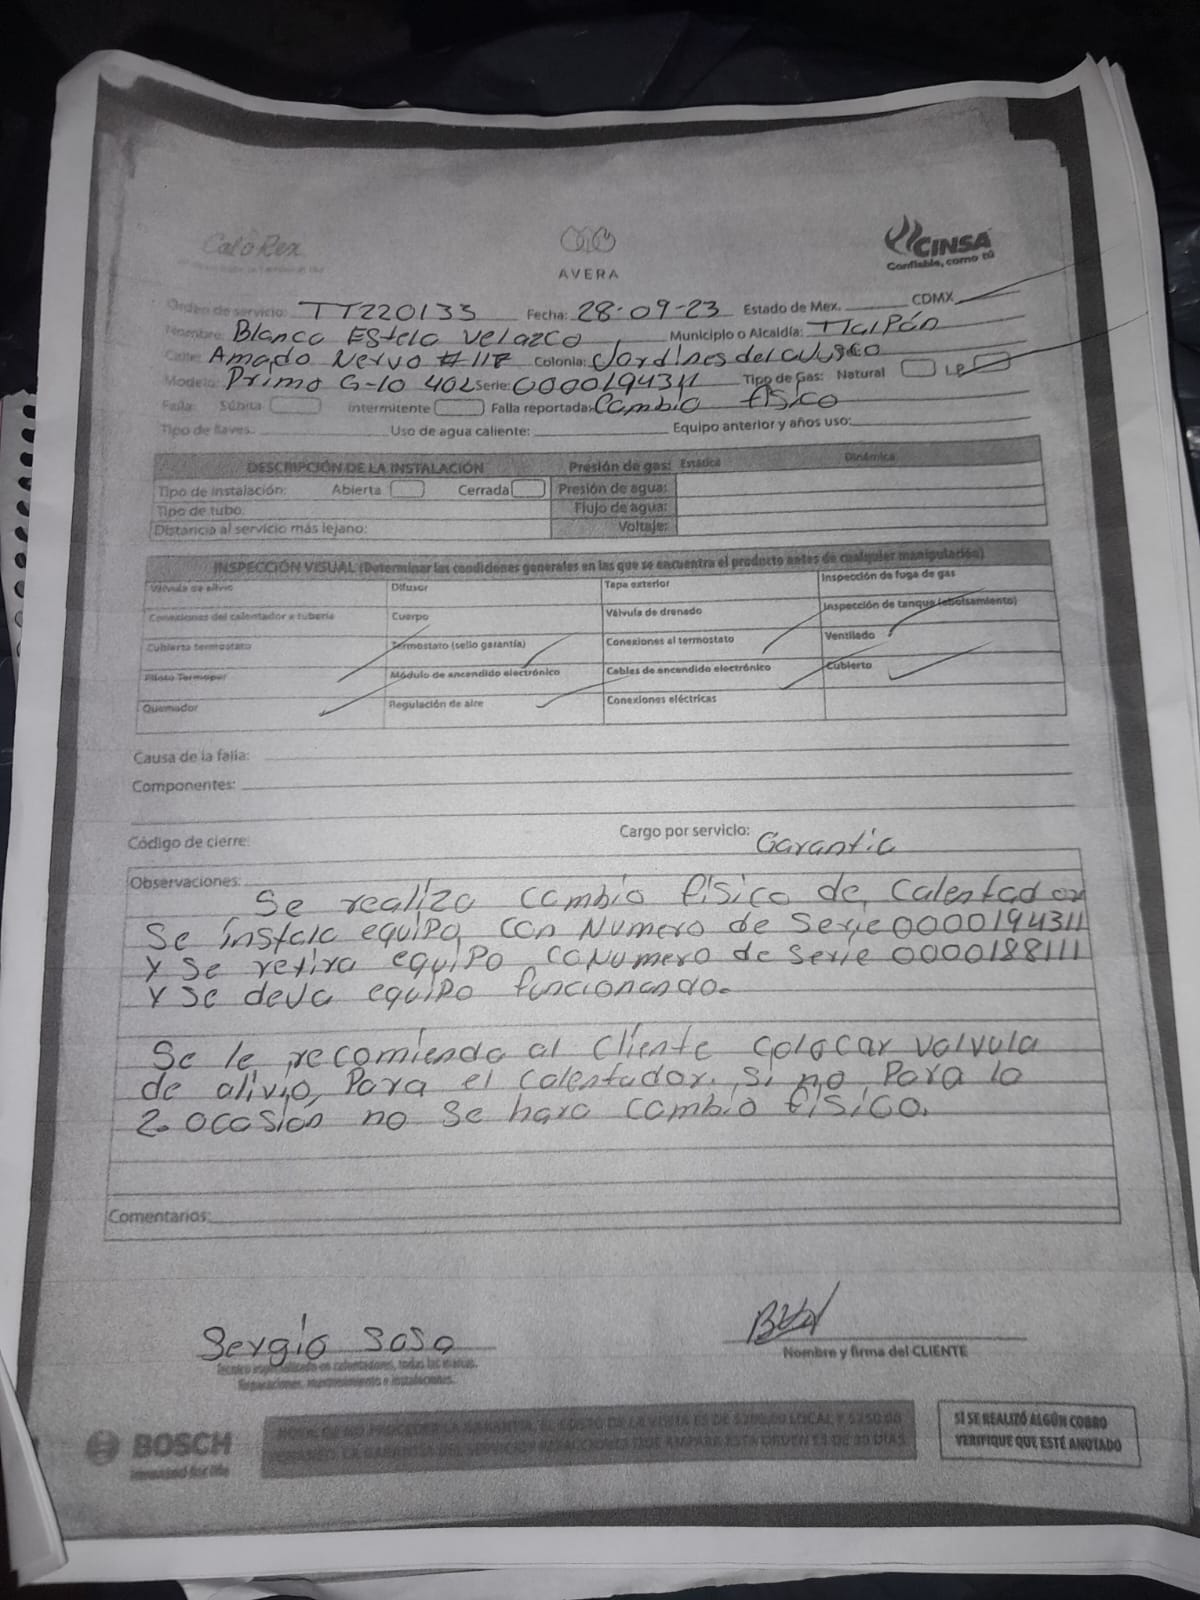 CaloRex
AVERA
CINSA
Confiable, como tú
Orden de servicio: TT220133 Fecha: 28-09-23 Estado de Mex. CDMX
Nombre: Blanca EStela Velazco Municipio o Alcaldía: Tlalpán
Calle: Amado Nervo # 117 Colonia: Jardines del ajusco
Modelo: Primo G-10 40L Serie: 0000194311 Tipo de Gas: Natural LP
Falla: Súbita Intermitente Falla reportada: Cambio físico
Tipo de llaves: Uso de agua caliente: Equipo anterior y años uso:
DESCRIPCIÓN DE LA INSTALACIÓN Presión de gas: Estática Dinámica
Tipo de instalación: Abierta Cerrada Presión de agua:
Tipo de tubo: Flujo de agua:
Distancia al servicio más lejano: Voltaje:
INSPECCIÓN VISUAL (Determinar las condiciones generales en las que se encuentra el producto antes de cualquier manipulación)
Válvula de alivio Difusor Tapa exterior Inspección de fuga de gas
Conexiones del calentador a tubería Cuerpo Válvula de drenado Inspección de tanque (abolsamiento)
Cubierta termostato Termostato (sello garantía) Conexiones al termostato Ventilado
Piloto Termopar Módulo de encendido electrónico Cables de encendido electrónico Cubierto
Quemador Regulación de aire Conexiones eléctricas
Causa de la falla:
Componentes:
Código de cierre: Cargo por servicio: Garantia
Observaciones:
Se realiza cambio físico de Calentador
Se instala equipo con Numero de Serie 0000194311
y Se retira equipo coNumero de Serie 0000188111
y Se deva equipo funcionando.
Se le recomienda al cliente colocar valvula
de alivio, Para el calentador. Si no, Para la
2. ocasión no Se hara cambio físico.
Comentarios:
Sergio Sosa
Técnico especializado en calentadores, todas las marcas.
Reparaciones, mantenimiento e instalaciones.
Nombre y firma del CLIENTE
BOSCH
Invented for life
NOTA: DE NO PROCEDER LA GARANTIA, EL COSTO DE LA VISITA ES DE $200.00 LOCAL Y $250.00
LA GARANTIA DEL SERVICIO Y REFACCIONES QUE AMPARA ESTA ORDEN ES DE 30 DIAS
SI SE REALIZÓ ALGÚN COBRO
VERIFIQUE QUE ESTÉ ANOTADO